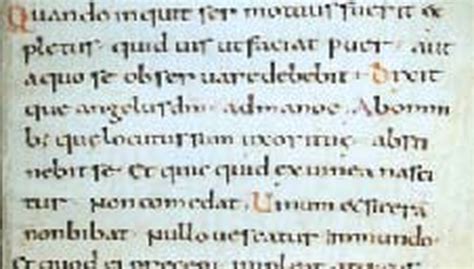 Quando inquit sermotuus fuerit ex
pletus quid uis utfaciat puer aut
aquo se obseruare debebit Dixit
que angelus dni admanoe Abomni
b; que locutus sum uxori tue absti
nebit se Et quic quid exuinea nasci
tur Non comedat Uinum & sicera
nonbibat Nullo uescatur Inmundo
Et quod ei precepi impleat